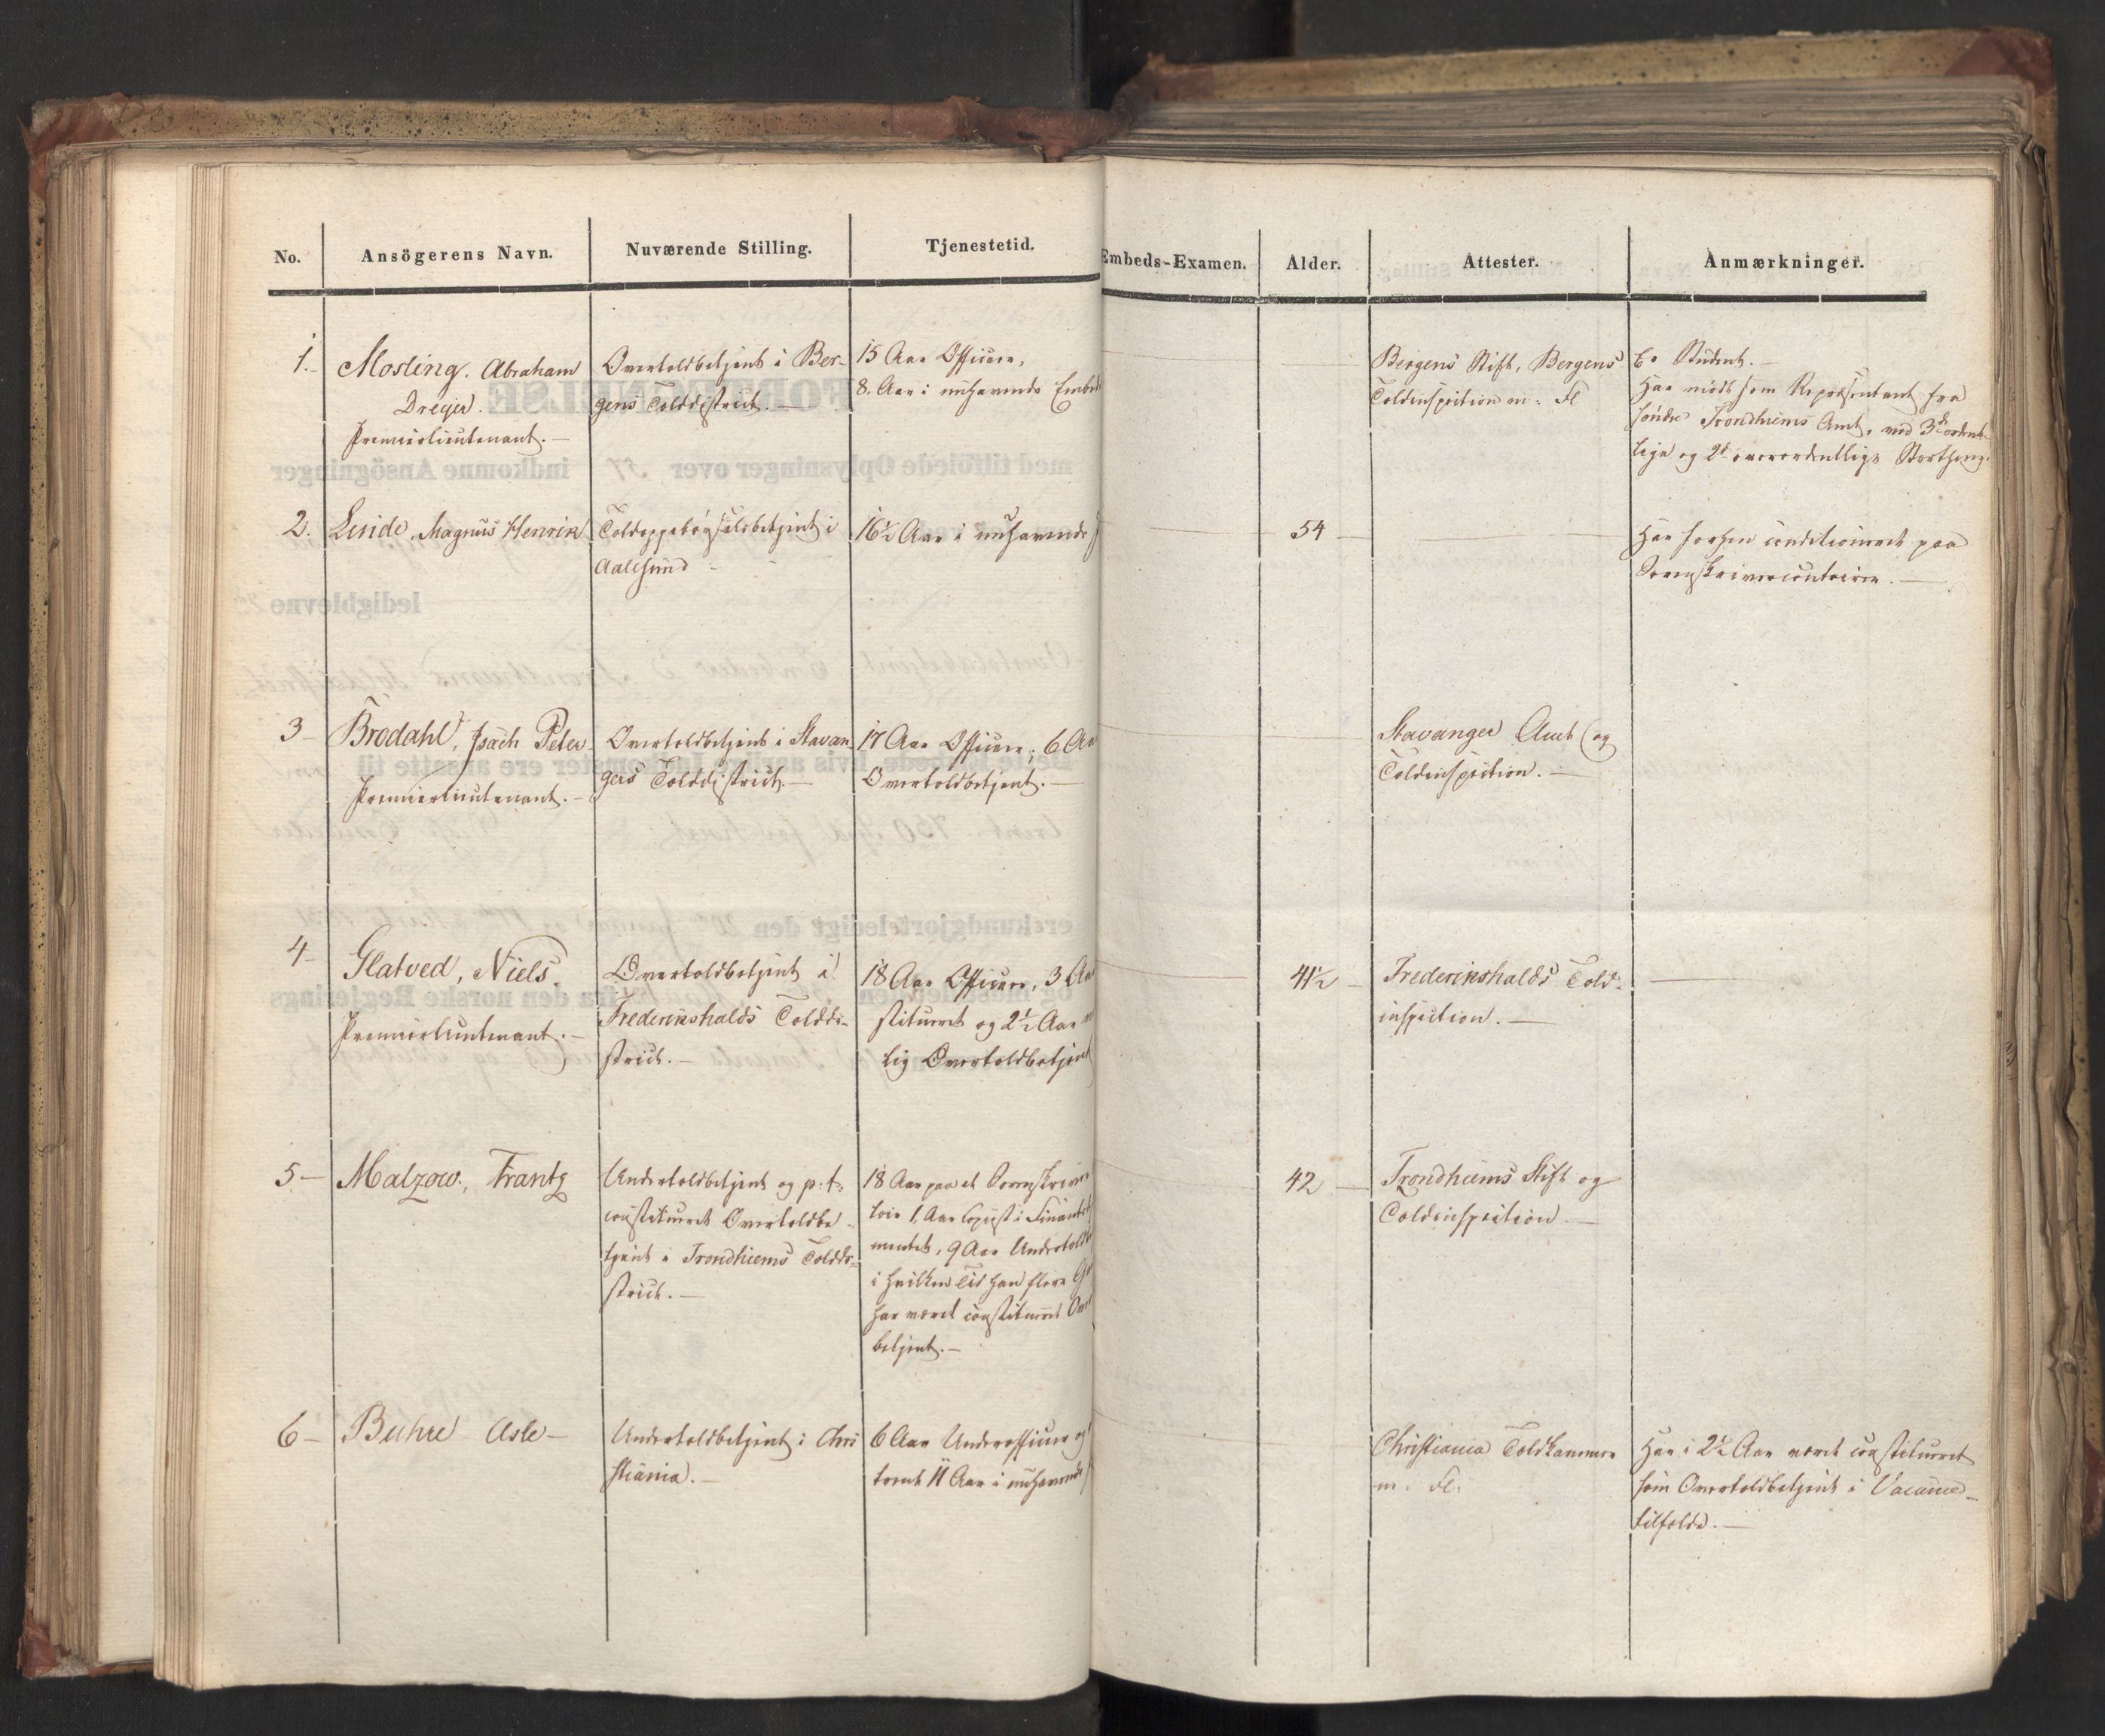 No.
Ansögerens Navn.
Nuværende Stilling.
Tjenestetid.
Embeds-Examen.
Alder.
Attester.
Anmærkninger.
1.-
Mosling. Abraham
Dreyer.
Premierlieutenant. -
Overtoldbetjent i Ber-
gens Tolddistrict. -
15 Aar Officeer,
8. Aar i nuhavende
Bergens Stift, Bergens
Toldinspection m: Fl
Er Student. -
Har mödt som Repræsentant fra
söndre Trondhiems Amt, ved 3die ordent-
lige og 2det overordentlige Storthing.
2.
Linde, Magnus Henrik
Toldoppebörselsbetjent i
Aalesund -
16½ Aar i nuhavende
54
Har forhen conditioneret paa
Sorenskrivercontoirer. -
3 -
Brodahl, Isach Peter
Premierlieutenant. -
Overtoldbetjent i Stavan-
gers Tolddistrict. -
17 Aar Officeer; 6
Overtoldbetjent. -
Stavanger Amt og
Toldinspection. -
4 -
Glatved, Niels.
Premierlieutenant. -
Overtoldbetjent i
Frederikshalds Tolddi-
strict. -
18 Aar Officeer, 3
stitueret og 2½ Aar
lig Overtoldbetjent
41½ -
Frederikshalds Told-
inspection. -
5 -
Matzow, Frantz
Undertoldbetjent og p: t:
constitueret Overtoldbe-
tjent i Trondhiems Tolddi-
strict. -
18 Aar paa et
toir 1, Aar Copiist i
mentet, 9 Aar
i hvilken Tid han flere
har været constitueret
betjent. -
42 -
Trondhiems Stift og
Toldinspection. -
6 -
Buhre Asle -
Undertoldbetjent i Chri
stiania. -
6 Aar Underofficeer og
tremt 11 Aar i nuhavende
Christiania Toldkammer
m. Fl.
Har i 2½ Aar været constitueret
som Overtoldbetjent i Vacance-
tilfælde. -